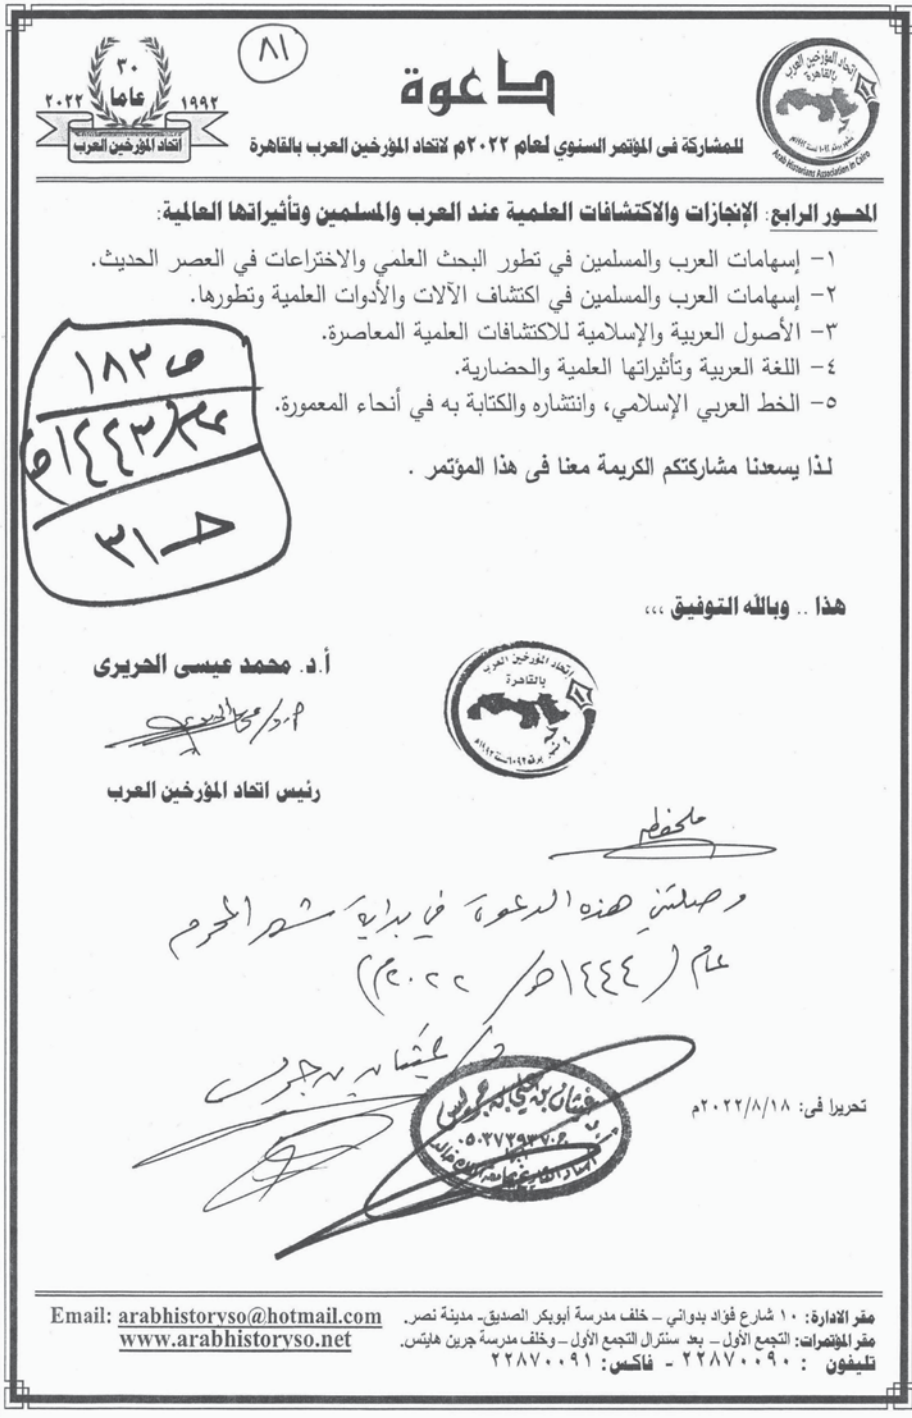 ٨١
٣٠
عاما
١٩٩٢
٢٠٢٢
اتحاد المؤرخين العرب
دعوة
للمشاركة فى المؤتمر السنوي لعام ٢٠٢٢م لاتحاد المؤرخين العرب بالقاهرة
اتحاد المؤرخين العرب
بالقاهرة
Arab Historians Association in Cairo
المحـور الرابع: الإنجازات والاكتشافات العلمية عند العرب والمسلمين وتأثيراتها العالمية:
١- إسهامات العرب والمسلمين في تطور البحث العلمي والاختراعات في العصر الحديث.
٢- إسهامات العرب والمسلمين في اكتشاف الآلات والأدوات العلمية وتطورها.
٣- الأصول العربية والإسلامية للاكتشافات العلمية المعاصرة.
٤- اللغة العربية وتأثيراتها العلمية والحضارية.
٥- الخط العربي الإسلامي، وانتشاره والكتابة به في أنحاء المعمورة.
ص ١٨٣
عام (١٤٤٣هـ)
حـ ٣١
لـذا يسعدنا مشاركتكم الكريمة معنا فى هذا المؤتمر .
هذا .. وبالله التوفيق ،،،
أ.د. محمد عيسى الحريرى
رئيس اتحاد المؤرخين العرب
اتحاد المؤرخين العرب
بالقاهرة
ملحظه
وصلتني هذه الدعوة في بداية شهر المحرم
عام (١٤٤٤هـ / ٢٠٢٢م)
د/ غيثان بن جريس
غيثان بن علي بن جريس
تحريرا فى: ٢٠٢٢/٨/١٨م
مقر الادارة: ١٠ شارع فؤاد بدواني – خلف مدرسة أبوبكر الصديق- مدينة نصر.
مقر المؤتمرات: التجمع الأول – بعد سنترال التجمع الأول – وخلف مدرسة جرين هايتس.
تليفون : ٢٢٨٧٠٠٩٠ - فاكس: ٢٢٨٧٠٠٩١
Email: arabhistoryso@hotmail.com
www.arabhistoryso.net